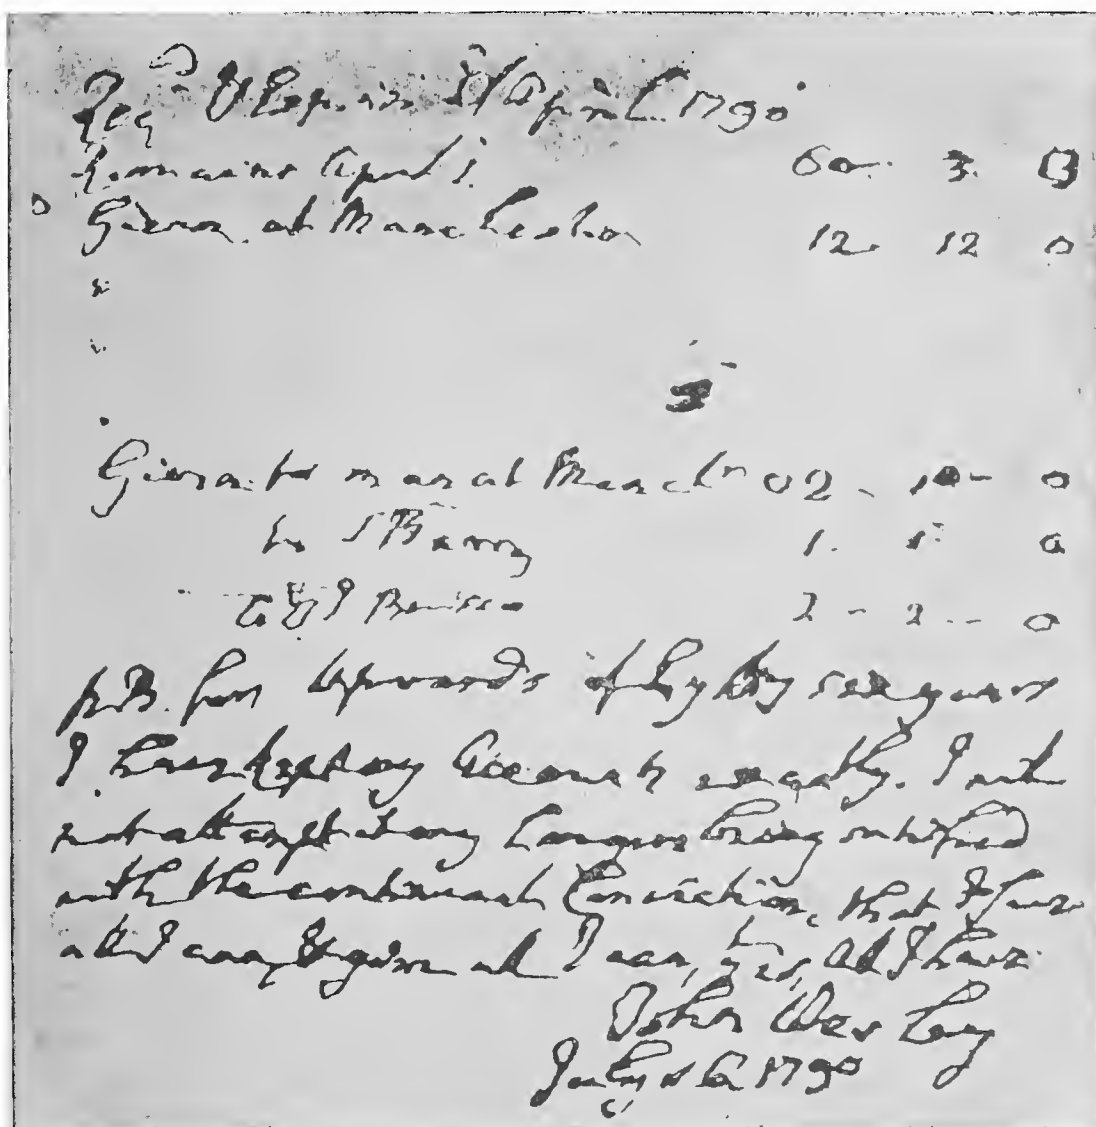 Rec^d & Exp in April 1790
Remains April 1. 60 3. 0
Given at Manchester 12 12 0
Given to man at Manch^r 02 - 10 - 0
to 1. 5 0
to 2 - 2 - 0
N.B. for upwards of eighty six years
I have kept my Accounts exactly. I will
not attempt it any longer being satisfied
with the continual Conviction, that I save
all I can, & give all I can, that is, all I have
John Wesley
July 16 1790